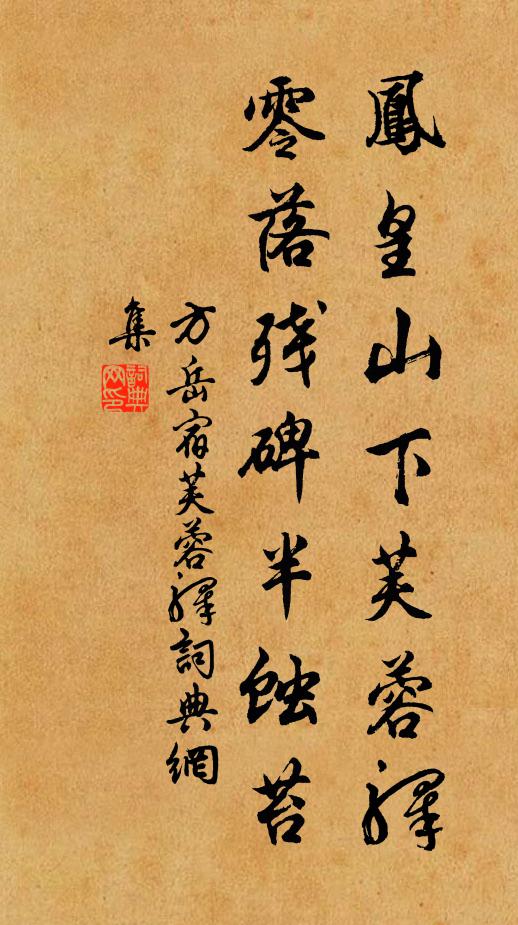 鳳皇山下芙蓉驛
零落殘碑半蝕苔
方岳宿芙蓉驛詞典網
集
詞典網印